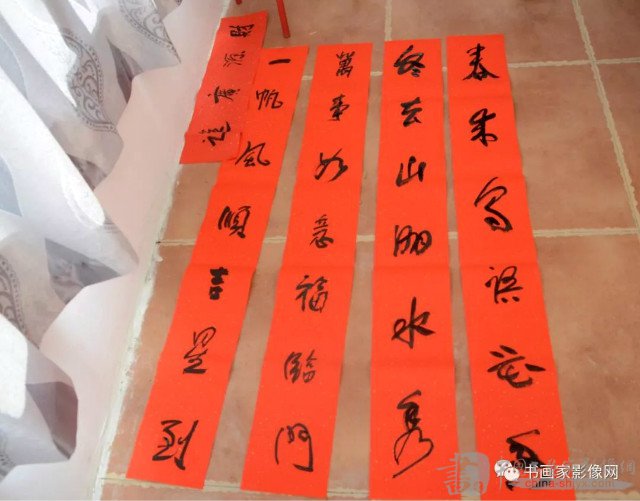 財源廣進
一帆風順吉星到
萬事如意福臨門
冬去山明水秀
春来鳥語花香
书画家影像网